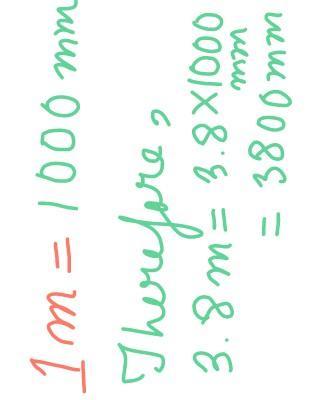 1m = 1000 mm
Therefore,
3.8m = 3.8×1000
mm
= 3800 mm